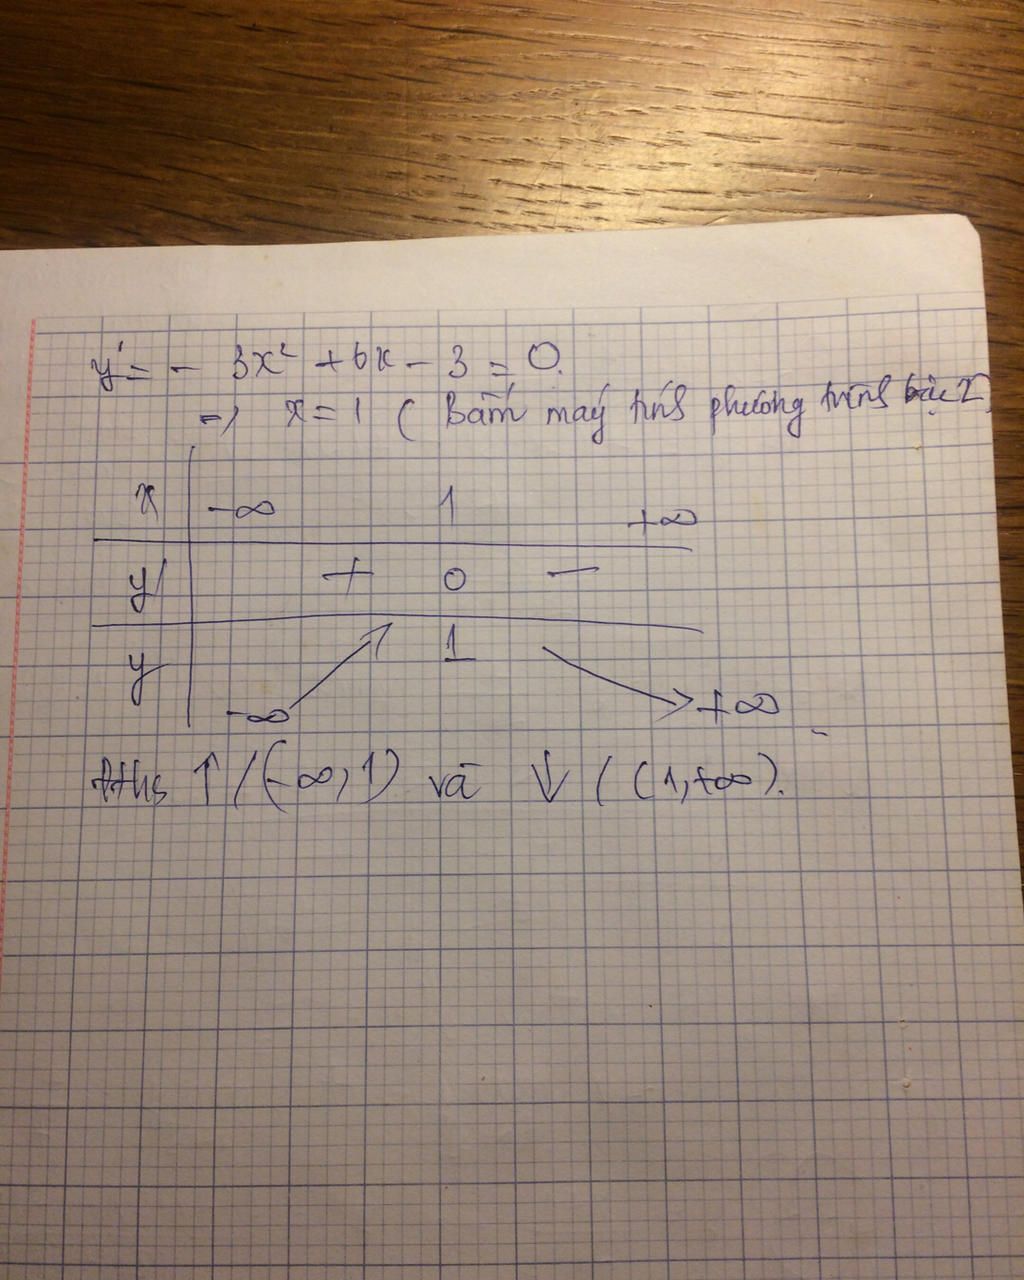 y' = - 3x² + 6x - 3 = 0.
=> x = 1 ( Bấm máy tính phương trình bậc 2)
x -∞ 1 +∞
y' + 0 -
y -∞ ↗ 1 ↘ +∞
↑ / (-∞, 1) và ↓ / (1, +∞).